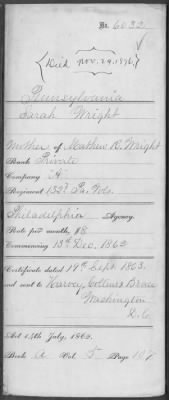 No. 6032
(Died Nov. 29. 1876.)
Pennsylvania
Sarah Wright
Mother of Mathew R. Wright
Rank Private
Company "A"
Regiment 133d Pa. Vols.
Philadelphia Agency.
Rate per month, $8
Commencing 13th Dec. 1862
Certificate dated 19th Sept. 1863.
and sent to Harvey, Collins & Brace
Washington
D.C.
Act 14th July, 1862.
Book A Vol. 5 Page